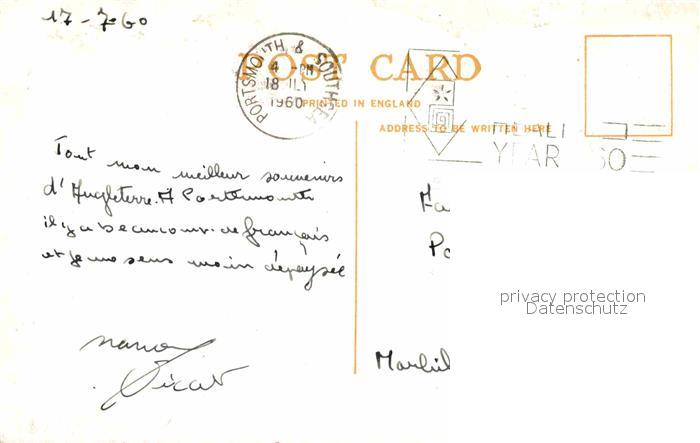 17-7-60
POST CARD
PORTSMOUTH & SOUTHSEA
4 - PM
18 JLY
1960
PRINTED IN ENGLAND
ADDRESS TO BE WRITTEN HERE
YEAR 60
Tout mon meilleur souvenirs
d'Angleterre. A Portsmouth
il y a beaucoup de français
et je me sens moin dépaysée
Fa
Po
privacy protection
Datenschutz